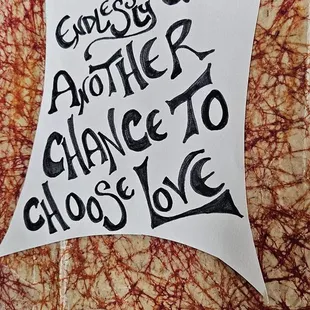 ENDLESSLY
ANOTHER
CHANCE TO
CHOOSE LOVE